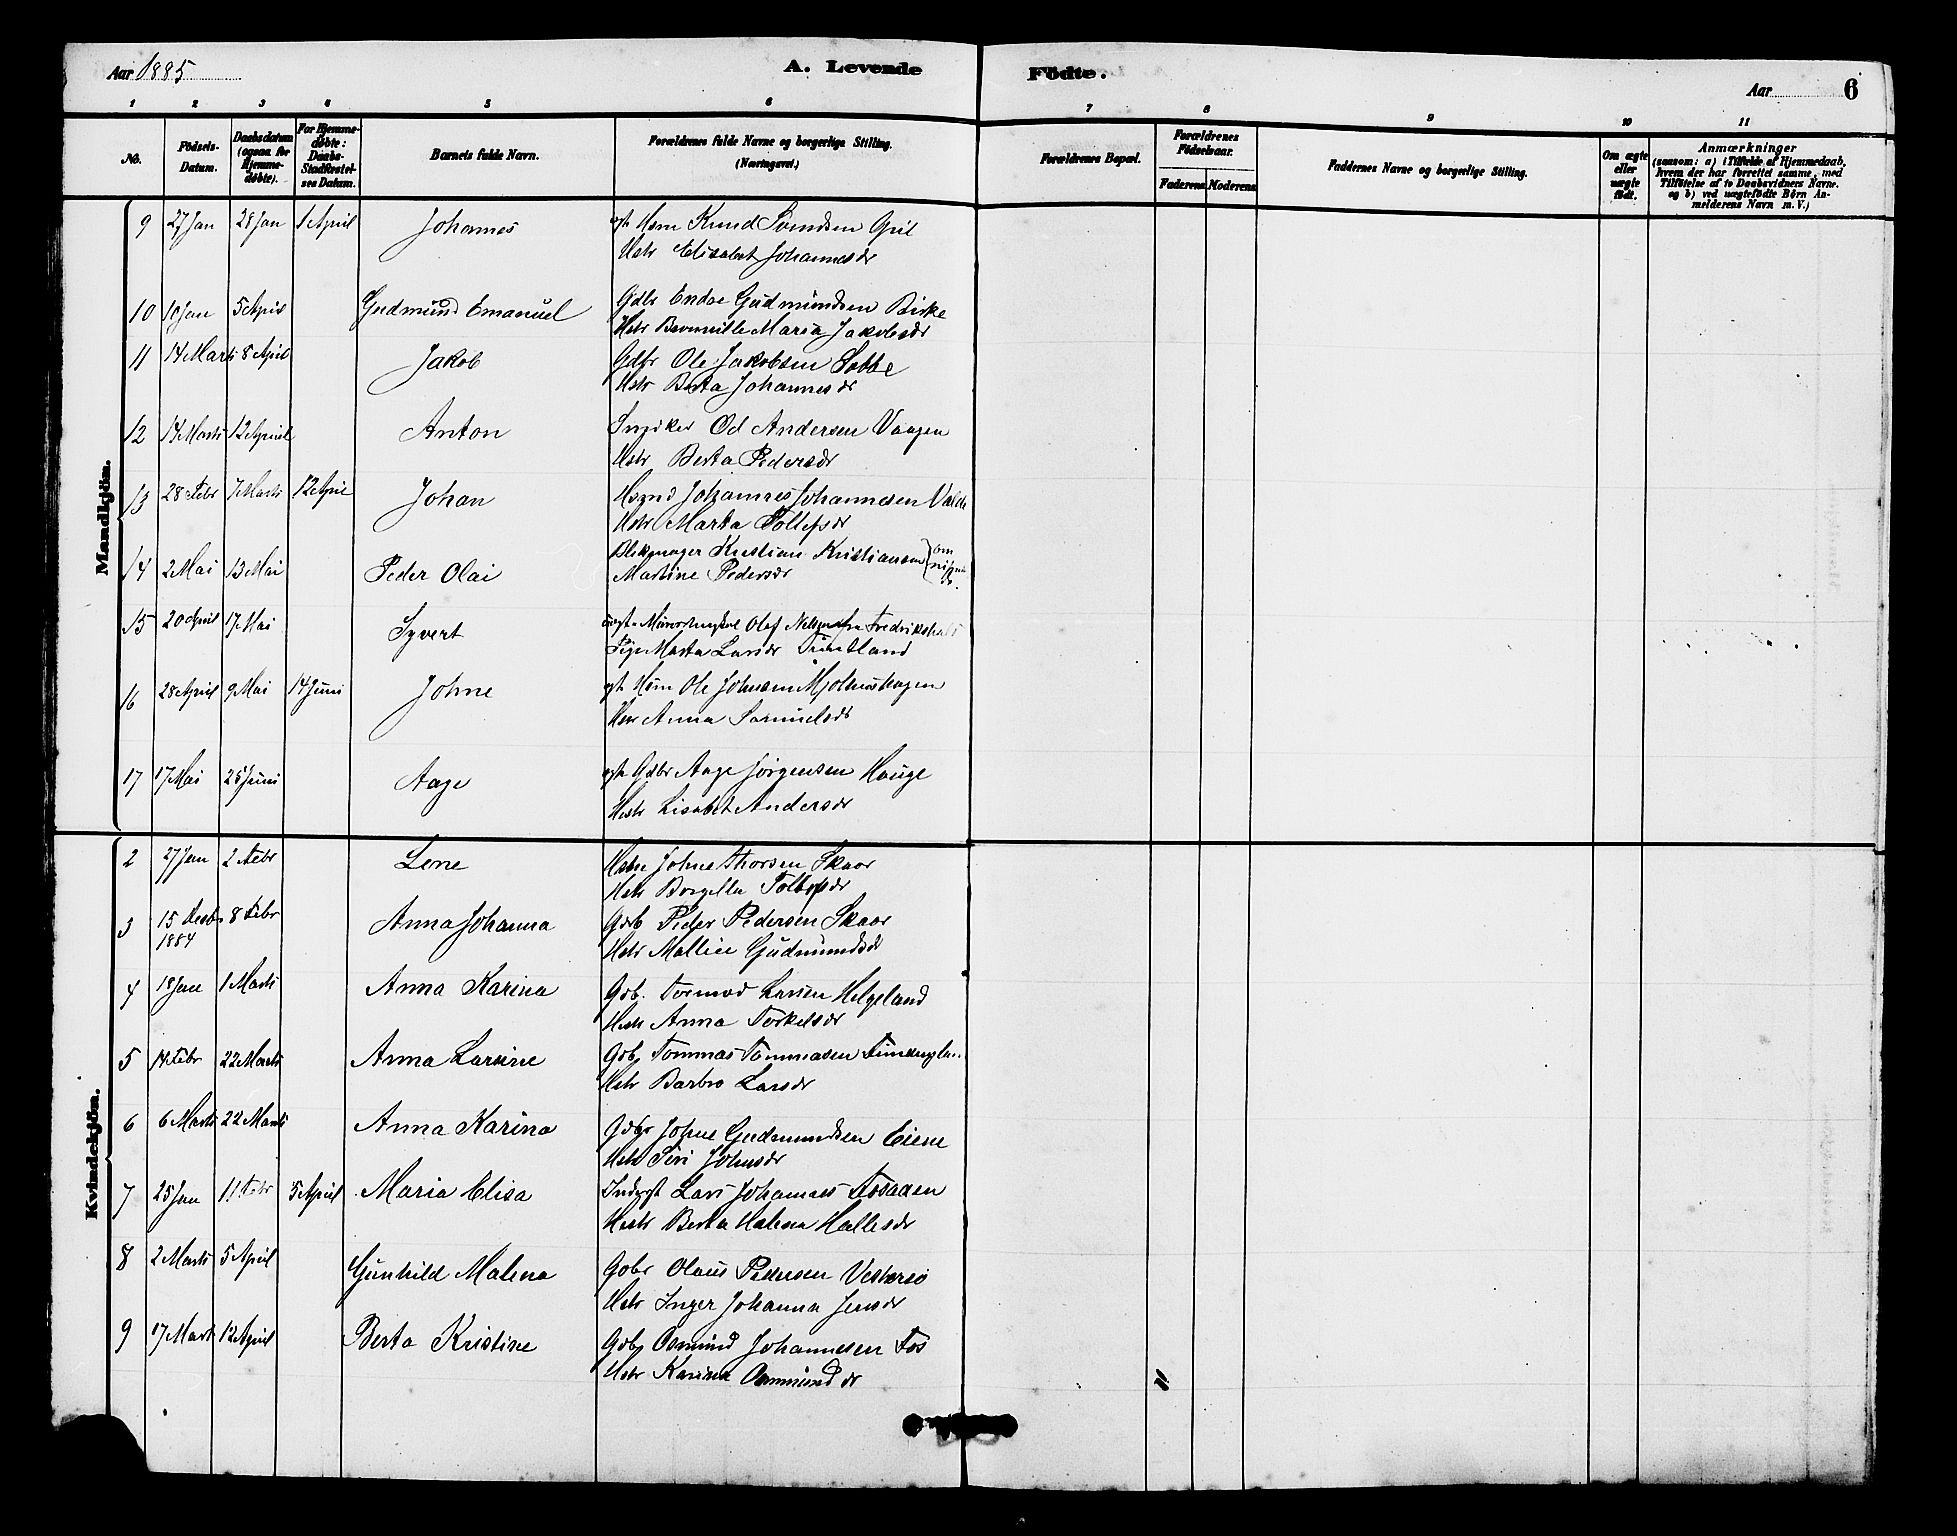 Aar 1885
A. Levende Födte.
Aar 6
1 2 3 4 5 6 7 8 9 10 11
No.
Födsels-Datum.
Daabsdatum (ogsaa for Hjemme-døbte).
For Hjemme-døbte: Daabs-Stadfæstel-ses Datum.
Barnets fulde Navn.
Forældrenes fulde Navne og borgerlige Stilling. (Næringsvei.)
Forældrenes Bopæl.
Forældrenes Födselsaar.
Faderens Moderens
Faddernes Navne og borgerlige Stilling.
Om ægte eller uægte født.
Anmærkninger
(saasom: a) i Tilfælde af Hjemmedaab,
hvem der har forrettet samme, med
Tilføielse af to Daabsvidners Navne,
og b) ved uægtefødte Börn An-
melderens Navn m. V.)
Mandkjön.
9 27 Jan 28 Jan 1 April Johannes Knud Svendsen
Hstr Elisabet Johannesdr
10 10 Jan 5 April Gudmund Emanuel Gdbr Endre Gudmundsen Birke
Hstr Maria Jakobsdr
11 14 Marts 8 April Jakob Gdbr Ole Jakobsen
Hstr Berta Johannesdr
12 14 Marts 12 April Anton Od Andersen Vaagen
Hstr Berta Pedersdr
13 28 Febr 7 Marts 12 April Johan Hsmd Johannes Johannesen
Hstr Marta Tollefsdr
14 2 Mai 13 Mai Peder Olai Kristian Kristiansen
Martine Pedersdr
15 20 April 17 Mai Syvert Olaf Fredrikshald
Pige Marta Larsdr
16 28 April 9 Mai 14 Juni Johne Ole Johnsen
Anna Samuelsdr
17 17 Mai 25 Juni Aage Gdbr Aage Jörgensen Hauge
Hstr Lisabet Andersdr
Kvindekjön.
2 27 Jan 2 Febr Lene Johne Thorsen Skaar
Hstr Borgella
3 15 Decbr 1884 8 Febr Anna Johanna Gdb Peder Pedersen Skaar
Hstr Malline Gudmundsdr
4 18 Jan 1 Marts Anna Karina Gdb. Tormod Larsen Helgeland
Hstr Anna Torkelsdr
5 22 Marts Anna Larsine Gdb Tommas Tommasen
Hstr Barbro Larsdr
6 6 Marts 22 Marts Anna Karina Gdbr Johne Gudmundsen Eiene
Hstr Siri Johnsdr
7 25 Jan 11 Febr 5 April Maria Elisa Lars Johannes
Hstr Berta Malena Hallesdr
8 2 Marts 5 April Gunhild Malena Gdbr Olaus Pedersen
Hstr Inger Johanna Jensdr
9 17 Marts 12 April Berta Kristine Gdb Osmund Johannesen Fos
Hstr Karina